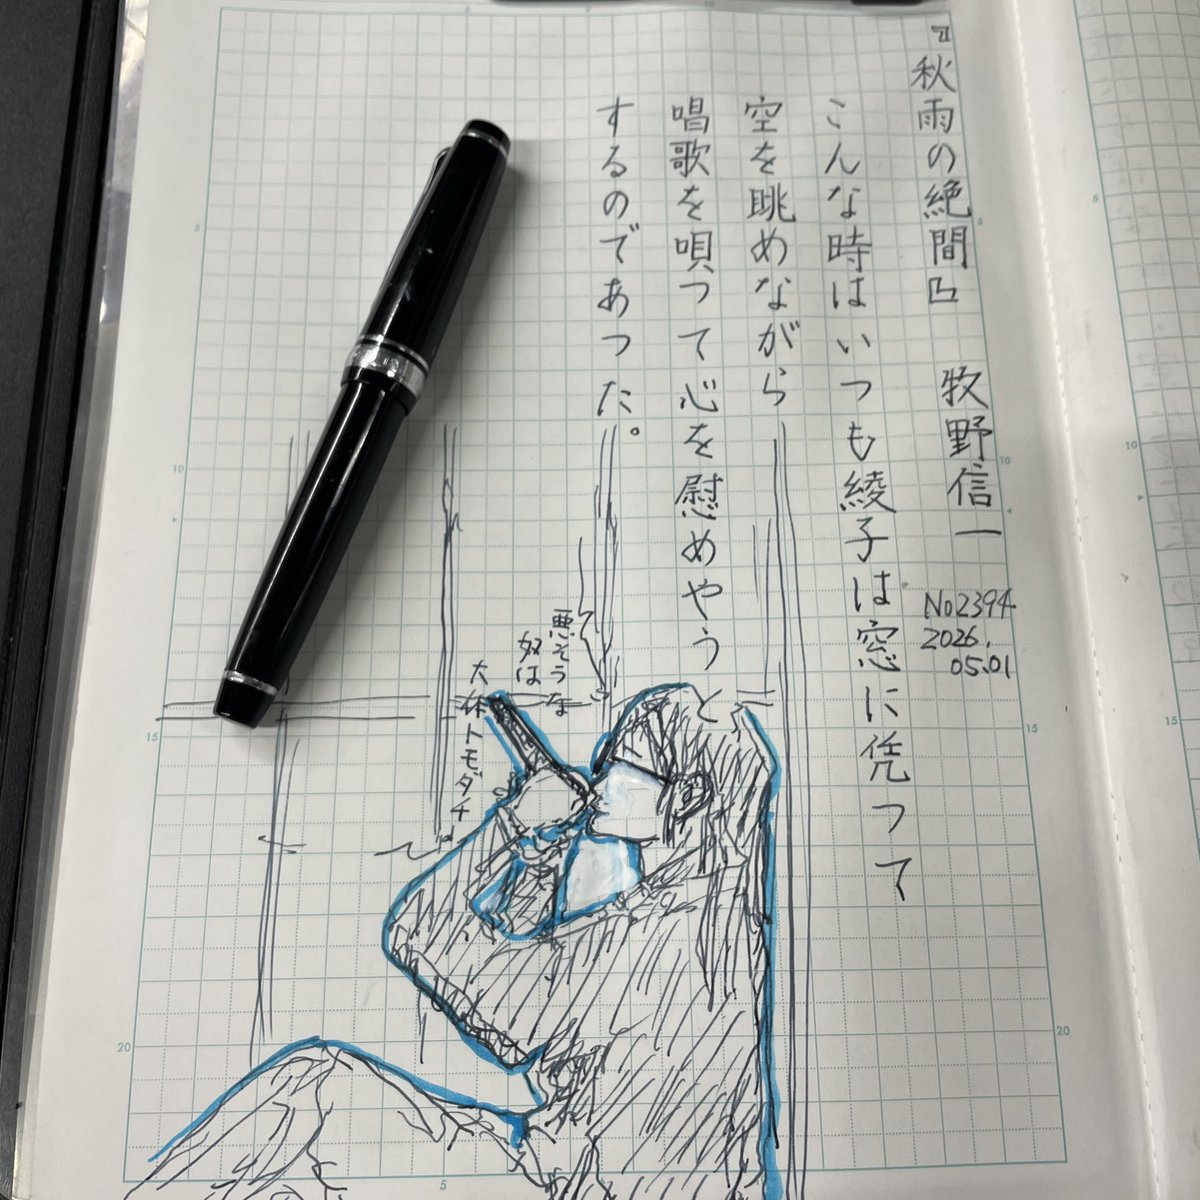 『秋雨の絶間』 牧野信一
No2394
2026.
05.01
こんな時はいつも綾子は窓に凭つて
空を眺めながら
唱歌を唄つて心を慰めやうと
するのであつた。
悪そうな
奴は
大体トモダチ。
5
10
15
20
5
10
15
20
5
5
10
15